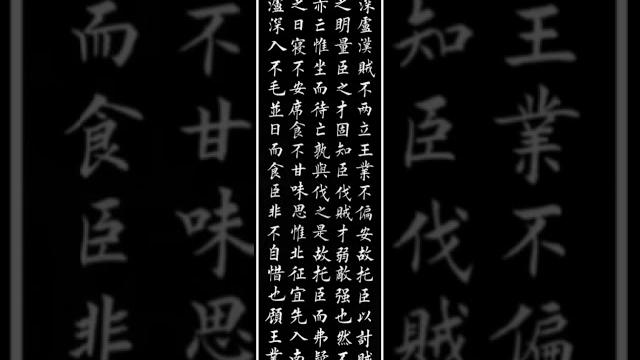 王業不偏
知臣伐
深慮漢賊不兩立王業不偏安故托臣以討賊
之明量臣之才固知臣伐賊才弱敵强也然不
亦亡惟坐而待亡孰與伐之是故托臣而弗疑
之日寢不安席食不甘味思惟北征宜先入南
瀘深入不毛並日而食臣非不自惜也顧王業
不甘味思
而食臣非